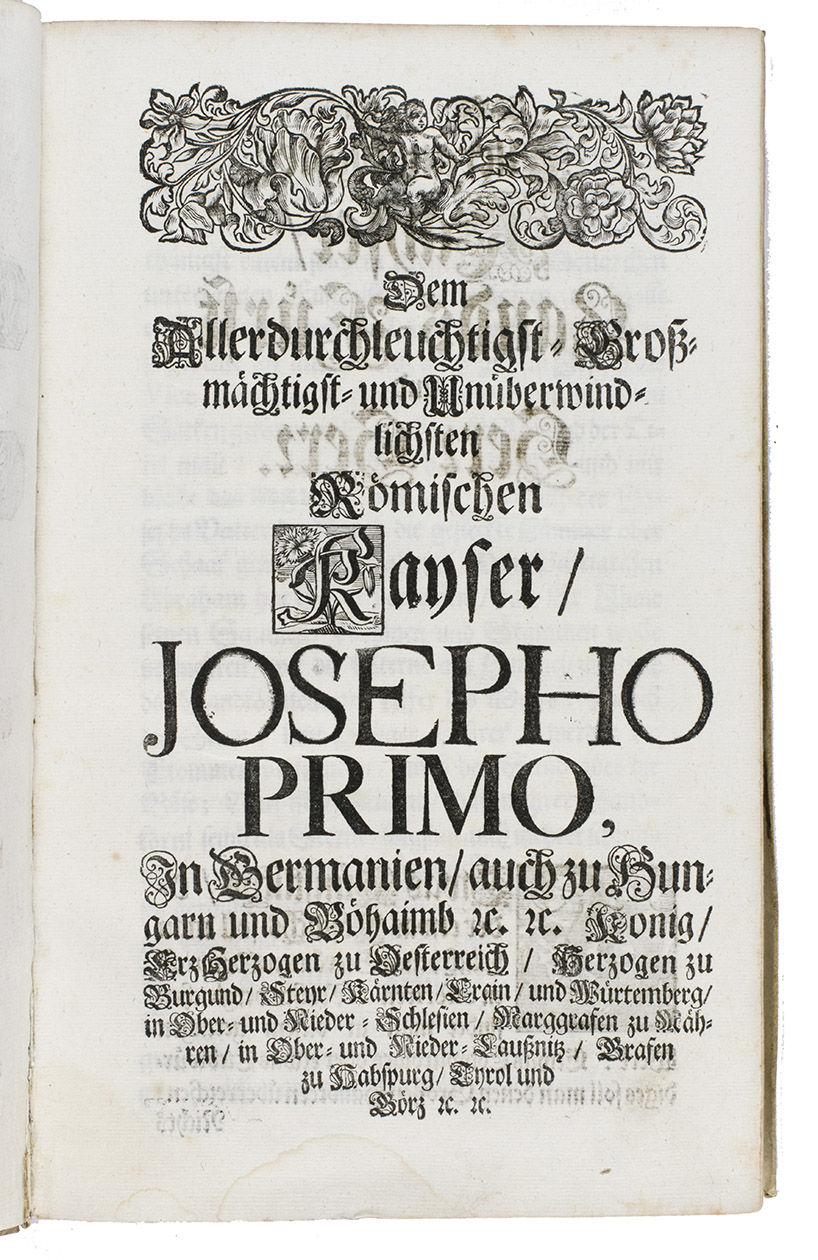 Dem
Allerdurchleuchtigst- Groß-
mächtigst- und Unüberwind-
lichsten
Römischen
Kayser /
JOSEPHO
PRIMO,
In Germanien / auch zu Hun-
garn und Böhaimb ꝛc. ꝛc. Konig /
Erz Herzogen zu Oesterreich / Herzogen zu
Burgund / Steyr / Kärnten / Crain / und Würtemberg /
in Ober- und Nieder- Schlesien / Marggrafen zu Mäh-
ren / in Ober- und Nieder- Laußnitz / Grafen
zu Habspurg / Tyrol und
Görz ꝛc. ꝛc.